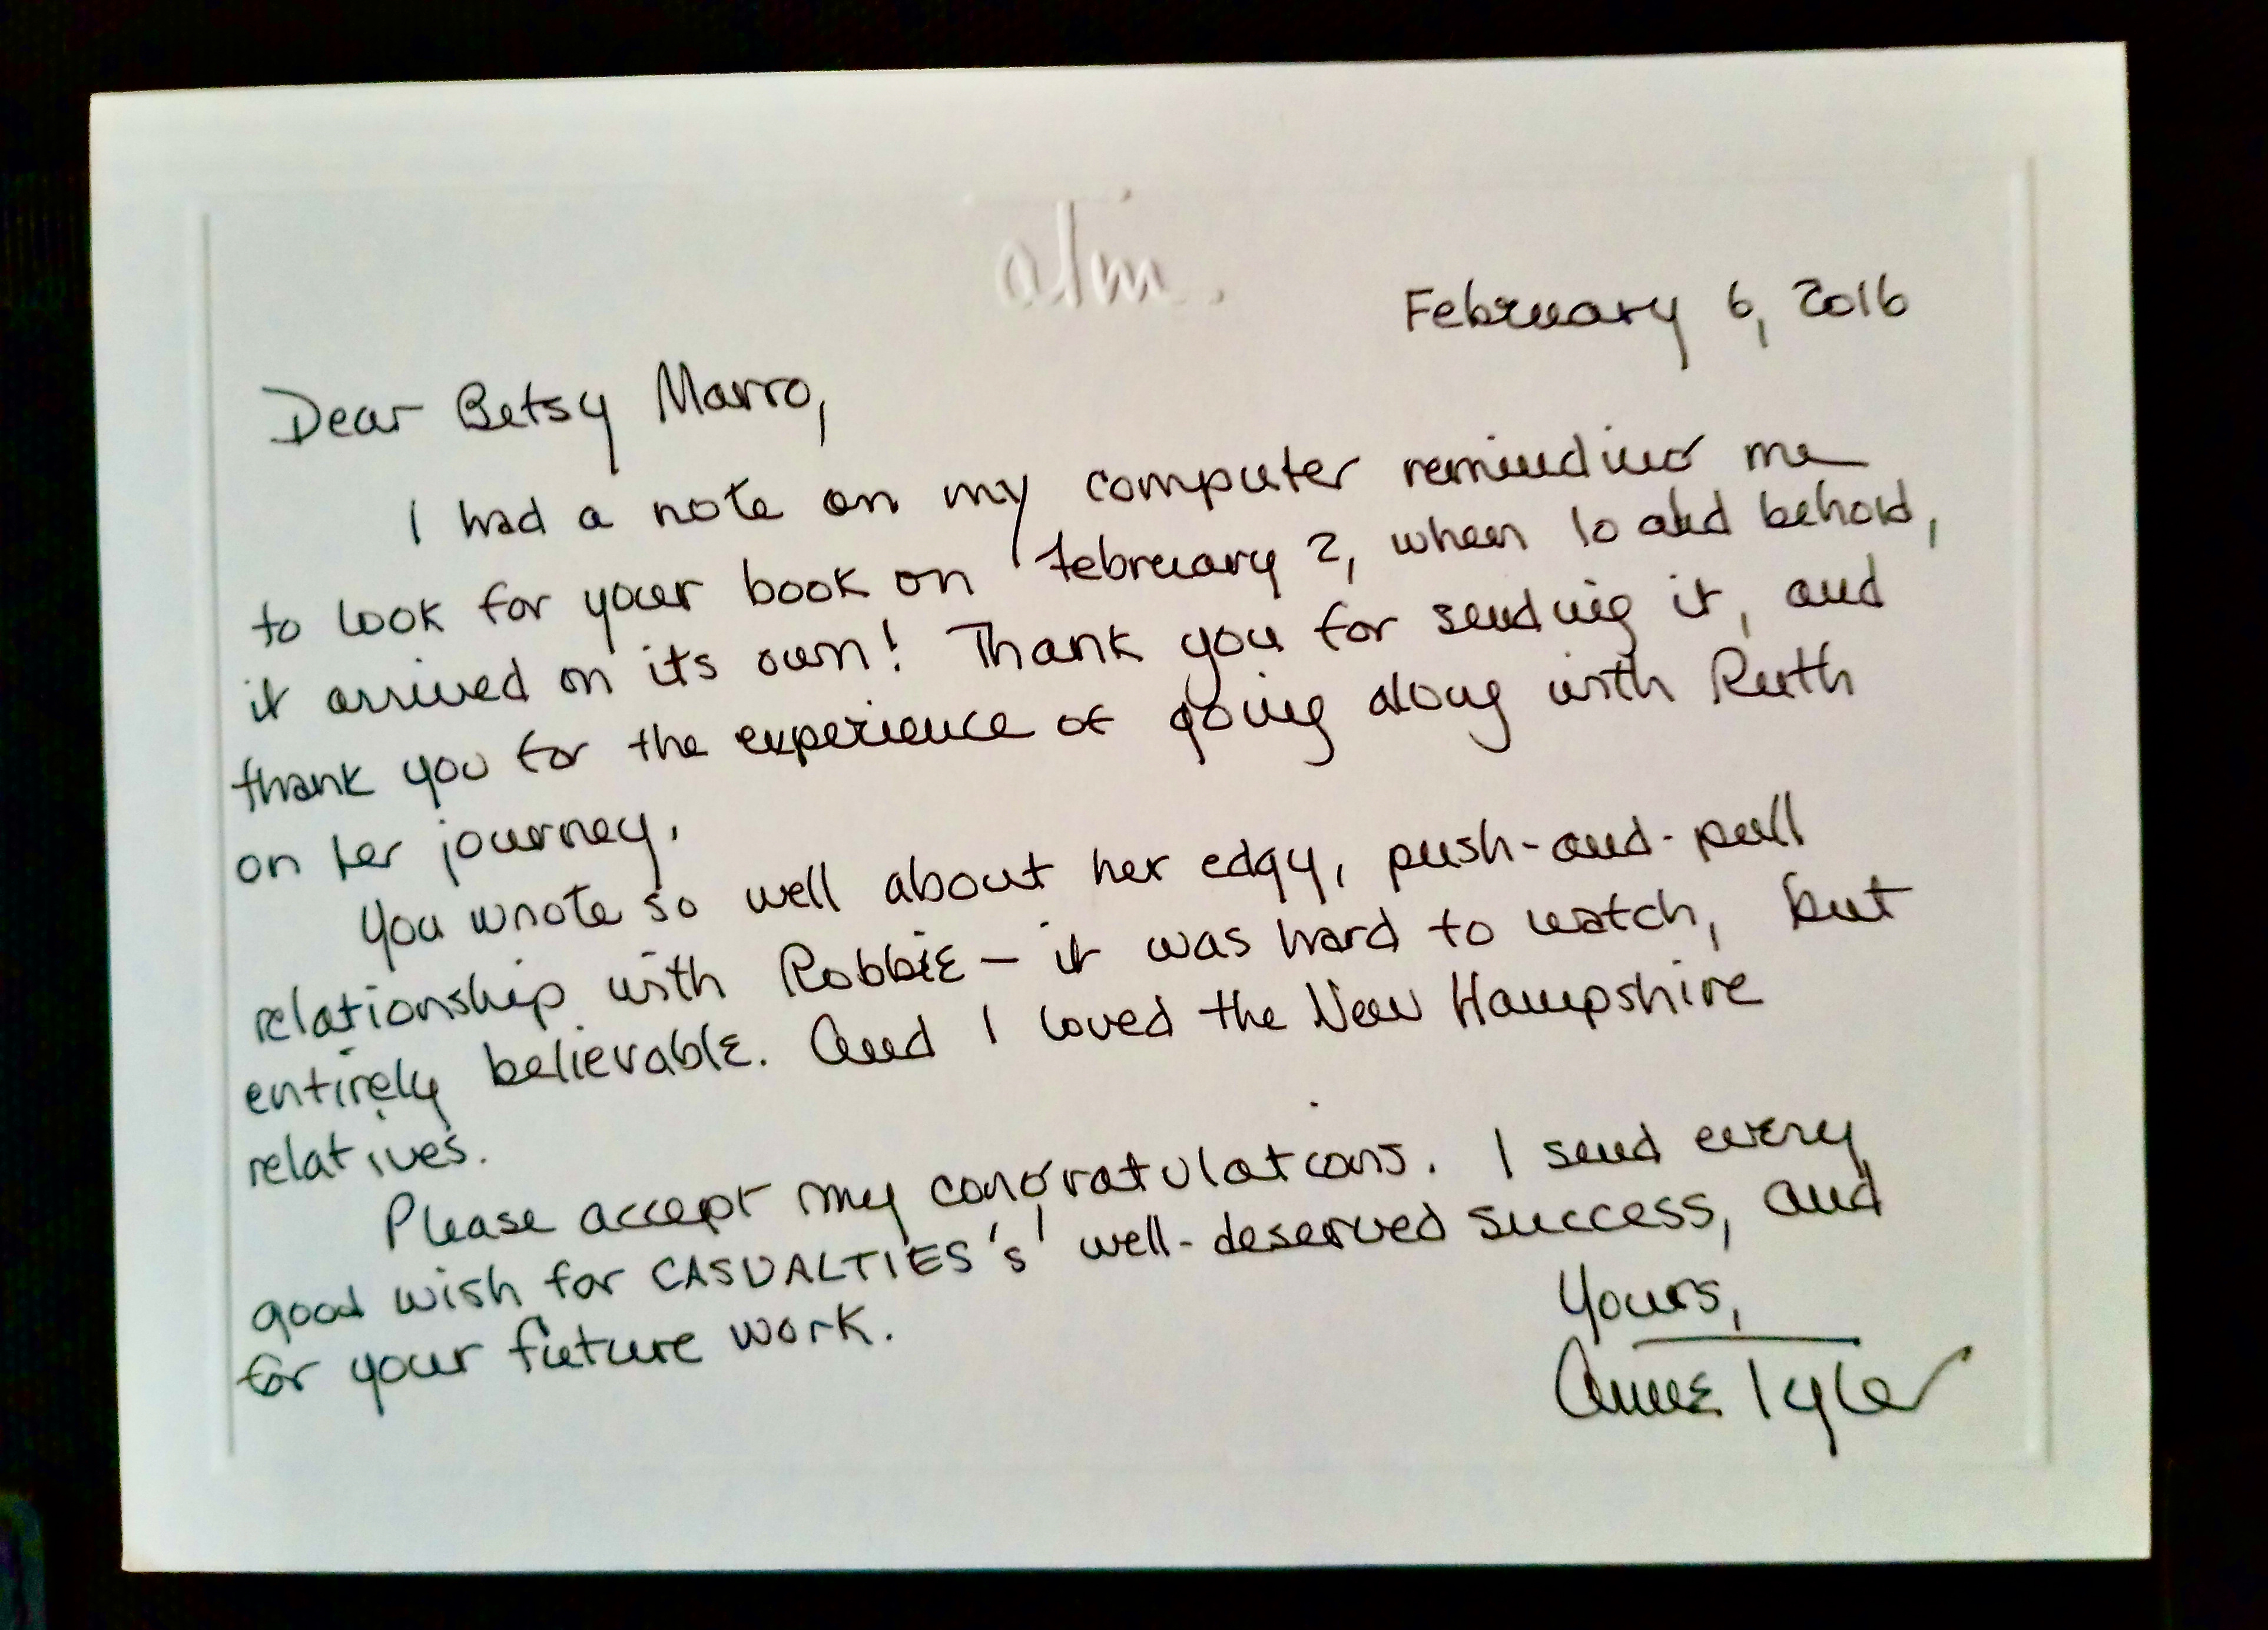 atm.
February 6, 2016
Dear Betsy Marro,
I had a note on my computer reminding me
to look for your book on February 2, when lo and behold,
it arrived on its own! Thank you for sending it, and
thank you for the experience of going along with Ruth
on her journey.
You wrote so well about her edgy, push-and-pull
relationship with Robbie — it was hard to watch, but
entirely believable. And I loved the New Hampshire
relatives.
Please accept my congratulations. I send every
good wish for CASUALTIES's well-deserved success, and
for your future work.
Yours,
Anne Tyler